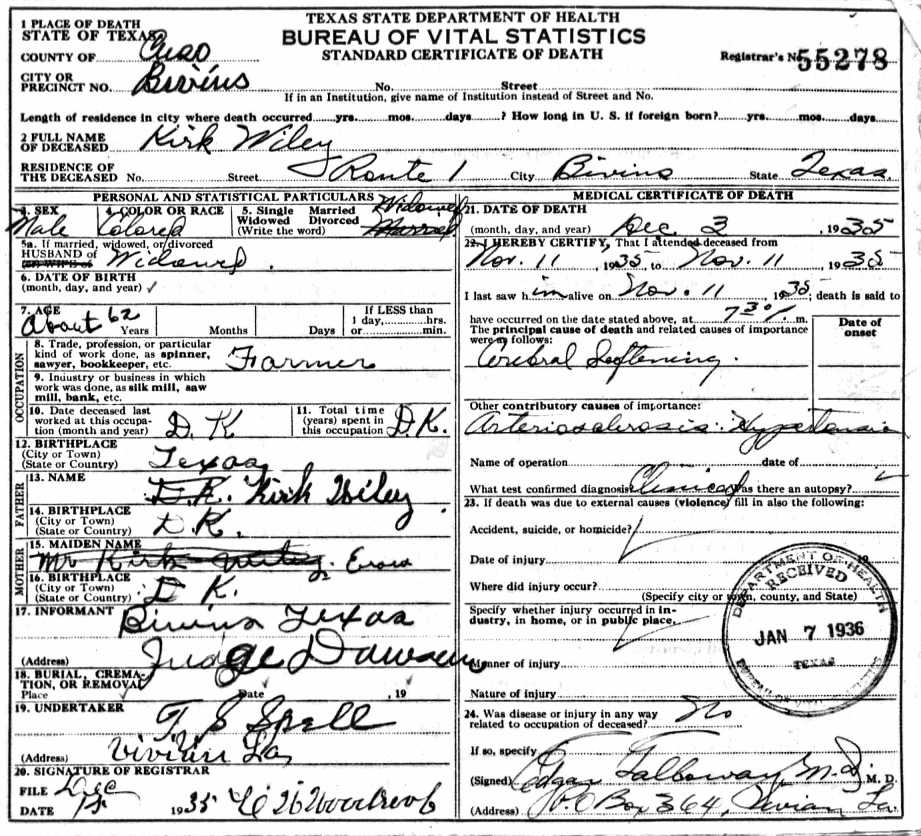 TEXAS STATE DEPARTMENT OF HEALTH
BUREAU OF VITAL STATISTICS
STANDARD CERTIFICATE OF DEATH
Registrar's No. 55278
1 PLACE OF DEATH
STATE OF TEXAS
COUNTY OF
CITY OR PRECINCT NO. Bivins No. Street
If in an Institution, give name of Institution instead of Street and No.
Length of residence in city where death occurred yrs. mos. days ? How long in U. S. if foreign born? yrs. mos. days
2 FULL NAME OF DECEASED Kirk Wiley
RESIDENCE OF THE DECEASED No. Street Route 1 City Bivins State Texas
PERSONAL AND STATISTICAL PARTICULARS
3. SEX Male
4. COLOR OR RACE Colored
5. Single Married Widowed Divorced (Write the word) Widowed Married
5a. If married, widowed, or divorced
HUSBAND of Widowed
(or) WIFE of
6. DATE OF BIRTH
(month, day, and year) ✓
7. AGE About 62 Years Months Days If LESS than 1 day, hrs. or min.
OCCUPATION
8. Trade, profession, or particular kind of work done, as spinner, sawyer, bookkeeper, etc. Farmer
9. Industry or business in which work was done, as silk mill, saw mill, bank, etc.
10. Date deceased last worked at this occupation (month and year) D.K
11. Total time (years) spent in this occupation D.K.
12. BIRTHPLACE
(City or Town)
(State or Country) Texas
FATHER
13. NAME D.K. Kirk Wiley
14. BIRTHPLACE
(City or Town)
(State or Country) D.K.
MOTHER
15. MAIDEN NAME
Mr Kirk Wiley
16. BIRTHPLACE
(City or Town)
(State or Country) D K.
17. INFORMANT Bivins Texas
(Address) Judge Dawson
18. BURIAL, CREMATION, OR REMOVAL
Place Date , 19
19. UNDERTAKER T S Spell
(Address) Vivian La
20. SIGNATURE OF REGISTRAR
FILE DATE Dec 1935
MEDICAL CERTIFICATE OF DEATH
21. DATE OF DEATH
(month, day, and year) Dec 3, 1935
22. I HEREBY CERTIFY, That I attended deceased from
Nov. 11, 1935, to Nov. 11, 1935
I last saw him alive on Nov. 11 1935, death is said to
have occurred on the date stated above, at 7 30 m.
The principal cause of death and related causes of importance were as follows:
Date of onset
Cerebral Softening.
Other contributory causes of importance:
Arteriosclerosis: Hypertension
Name of operation date of
What test confirmed diagnosis Clinical Was there an autopsy?
23. If death was due to external causes (violence) fill in also the following:
Accident, suicide, or homicide?
Date of injury 19
Where did injury occur?
(Specify city or town, county, and State)
Specify whether injury occurred in industry, in home, or in public place.
Manner of injury
Nature of injury
24. Was disease or injury in any way related to occupation of deceased? No
If so, specify
(Signed) Edgar Galloway M.D. M. D.
(Address) P.O Box 364, Vivian La.
DEPARTMENT OF HEALTH
RECEIVED
JAN 7 1936
TEXAS
BUREAU OF VITAL STATISTICS